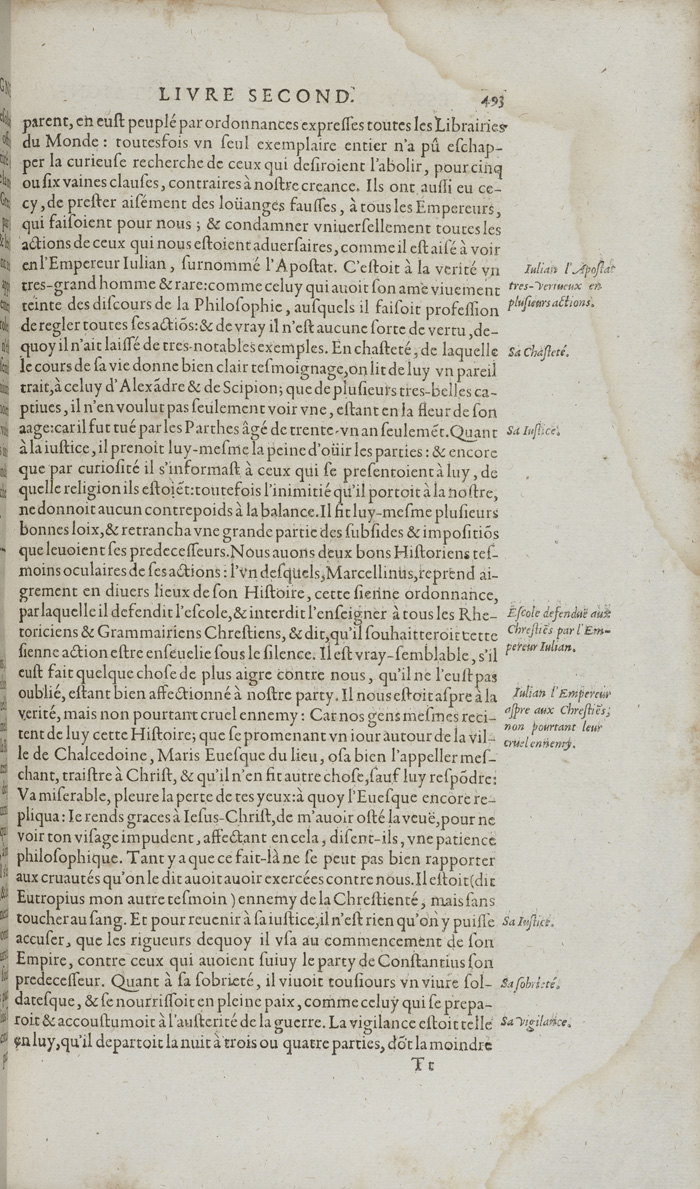 LIVRE SECOND.
493
parent, en euſt peuplé par ordonnances expreſſes toutes les Librairies
du Monde : toutesfois vn ſeul exemplaire entier n'a pû eſchap-
per la curieuſe recherche de ceux qui deſiroient l'abolir, pour cinq
ou ſix vaines clauſes, contraires à noſtre creance. Ils ont auſſi eu ce-
cy, de preſter aiſément des loüanges fauſſes, à tous les Empereurs,
qui faiſoient pour nous ; & condamner vniuerſellement toutes les
actions de ceux qui nous eſtoient aduerſaires, comme il eſt aiſé à voir
en l'Empereur Iulian, ſurnommé l'Apoſtat. C'eſtoit à la verité vn
tres-grand homme & rare: comme celuy qui auoit ſon ame viuement
teinte des diſcours de la Philoſophie, auſquels il faiſoit profeſſion
de regler toutes ſes actiõs: & de vray il n'eſt aucune ſorte de vertu, de-
quoy il n'ait laiſſé de tres-notables exemples. En chaſteté, de laquelle
le cours de ſa vie donne bien clair teſmoignage, on lit de luy vn pareil
trait, à celuy d'Alexãdre & de Scipion; que de pluſieurs tres-belles ca-
ptiues, il n'en voulut pas ſeulement voir vne, eſtant en la fleur de ſon
aage: car il fut tué par les Parthes âgé de trente-vn an ſeulemẽt. Quant
à la iuſtice, il prenoit luy-meſme la peine d'oüir les parties : & encore
que par curioſité il s'informaſt à ceux qui ſe preſentoient à luy, de
quelle religion ils eſtoiẽt: toutefois l'inimitié qu'il portoit à la noſtre,
ne donnoit aucun contrepoids à la balance. Il fit luy-meſme pluſieurs
bonnes loix, & retrancha vne grande partie des ſubſides & impoſitiõs
que leuoient ſes predeceſſeurs. Nous auons deux bons Hiſtoriens teſ-
moins oculaires de ſes actions : l'vn deſquels, Marcellinus, reprend ai-
grement en diuers lieux de ſon Hiſtoire, cette ſienne ordonnance,
par laquelle il defendit l'eſcole, & interdit l'enſeigner à tous les Rhe-
toriciens & Grammairiens Chreſtiens, & dit, qu'il ſouhaitteroit cette
ſienne action eſtre enſeuelie ſous le ſilence. Il eſt vray-ſemblable, s'il
euſt fait quelque choſe de plus aigre contre nous, qu'il ne l'euſt pas
oublié, eſtant bien affectionné à noſtre party. Il nous eſtoit aſpre à la
verité, mais non pourtant cruel ennemy : Car nos gens meſmes reci-
tent de luy cette Hiſtoire; que ſe promenant vn iour autour de la vil-
le de Chalcedoine, Maris Eueſque du lieu, oſa bien l'appeller meſ-
chant, traiſtre à Chriſt, & qu'il n'en fit autre choſe, ſauf luy reſpõdre:
Va miſerable, pleure la perte de tes yeux: à quoy l'Eueſque encore re-
pliqua: Ie rends graces à Ieſus-Chriſt, de m'auoir oſté la veuë, pour ne
voir ton viſage impudent, affectant en cela, diſent-ils, vne patience
philoſophique. Tant y a que ce fait-là ne ſe peut pas bien rapporter
aux cruautés qu'on le dit auoit auoir exercées contre nous. Il eſtoit (dit
Eutropius mon autre teſmoin) ennemy de la Chreſtienté, mais ſans
toucher au ſang. Et pour reuenir à ſa iuſtice, il n'eſt rien qu'on y puiſſe
accuſer, que les rigueurs dequoy il vſa au commencement de ſon
Empire, contre ceux qui auoient ſuiuy le party de Conſtantius ſon
predeceſſeur. Quant à ſa ſobrieté, il viuoit touſiours vn viure ſol-
dateſque, & ſe nourriſſoit en pleine paix, comme celuy qui ſe prepa-
roit & accouſtumoit à l'auſterité de la guerre. La vigilance eſtoit telle
en luy, qu'il departoit la nuit à trois ou quatre parties, dõt la moindre
Tt
Iulian l'Apoſtat
tres-vertueux en
pluſieurs actions.
Sa Chaſteté.
Sa Iuſtice.
Eſcole defenduë aux
Chreſtiẽs par l'Em-
pereur Iulian.
Iulian l'Empereur
aſpre aux Chreſtiẽs,
non pourtant leur
cruel ennemy.
Sa Iuſtice.
Sa ſobrieté.
Sa vigilance.